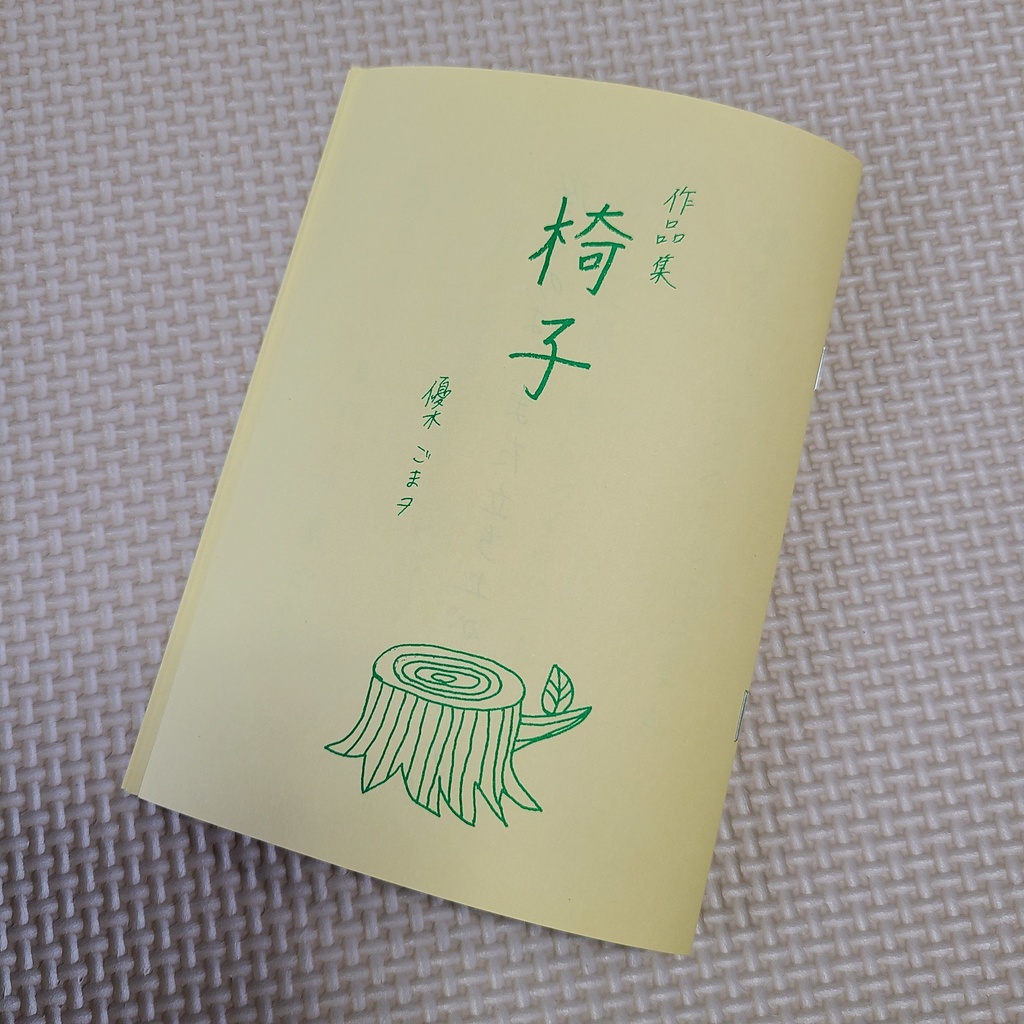 作品集
椅子
優木 ごまヲ